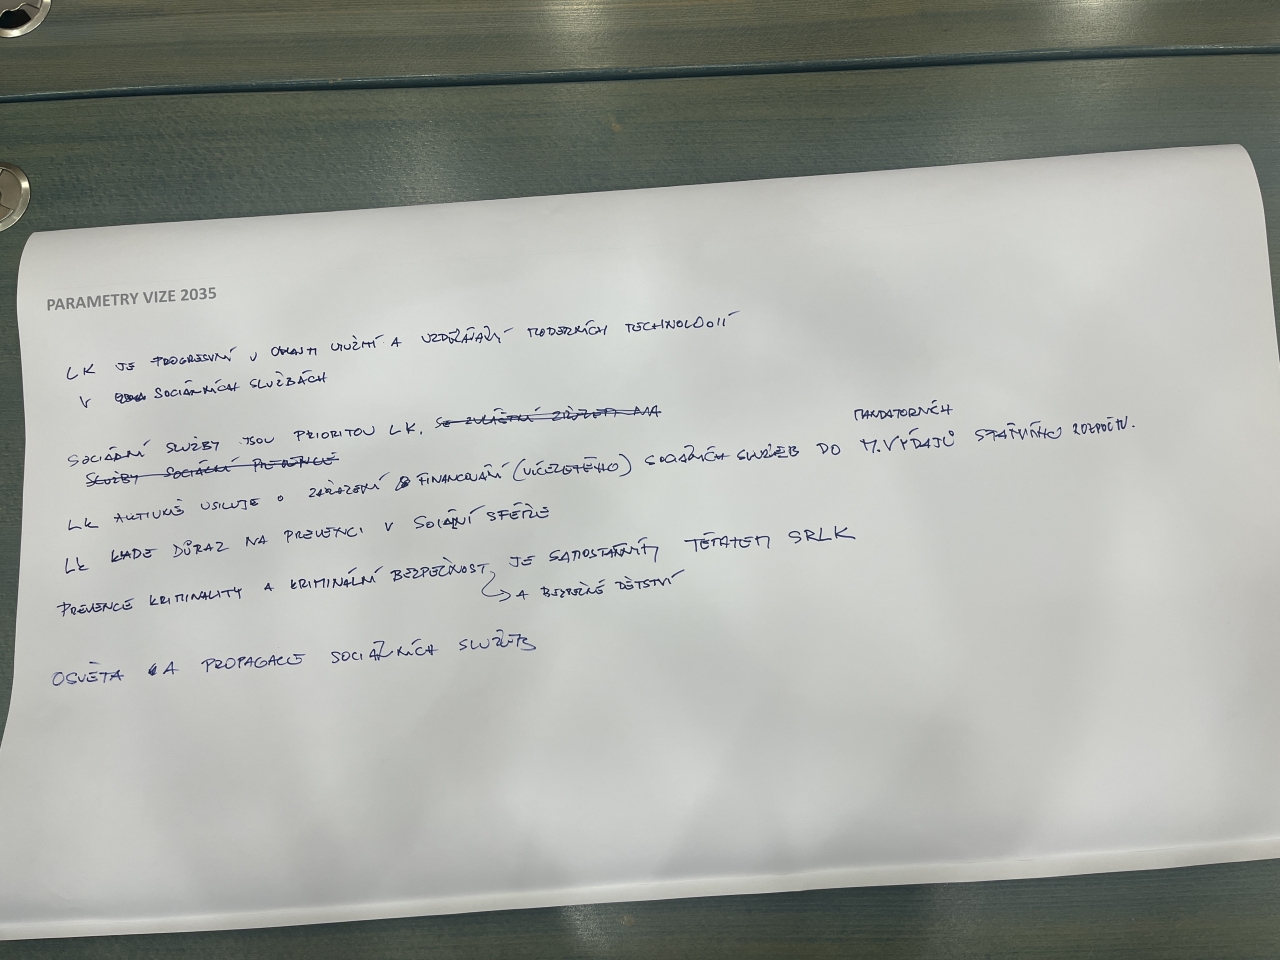 PARAMETRY VIZE 2035
LK JE PROGRESIVNÍ V OBLASTI VYUŽITÍ A VZDĚLÁVÁNÍ MODERNÍCH TECHNOLOGIÍ
V SOCIÁLNÍCH SLUŽBÁCH
SOCIÁLNÍ SLUŽBY JSOU PRIORITOU LK. SE ZVLÁŠTNÍ ZŘETEL NA
SLUŽBY SOCIÁLNÍ PREVENCE
MANDATORNÍCH
LK AKTIVNĚ USILUJE O ZAŘAZENÍ FINANCOVÁNÍ (VÍCELETÉHO) SOCIÁLNÍCH SLUŽEB DO M. VÝDAJŮ STÁTNÍHO ROZPOČTU.
LK KLADE DŮRAZ NA PREVENCI V SOCIÁLNÍ SFÉŘE
PREVENCE KRIMINALITY A KRIMINÁLNÍ BEZPEČNOST JE SAMOSTATNÝM TÉMATEM SRLK
→ A BEZPEČNÉ DĚTSTVÍ
OSVĚTA A PROPAGACE SOCIÁLNÍCH SLUŽEB